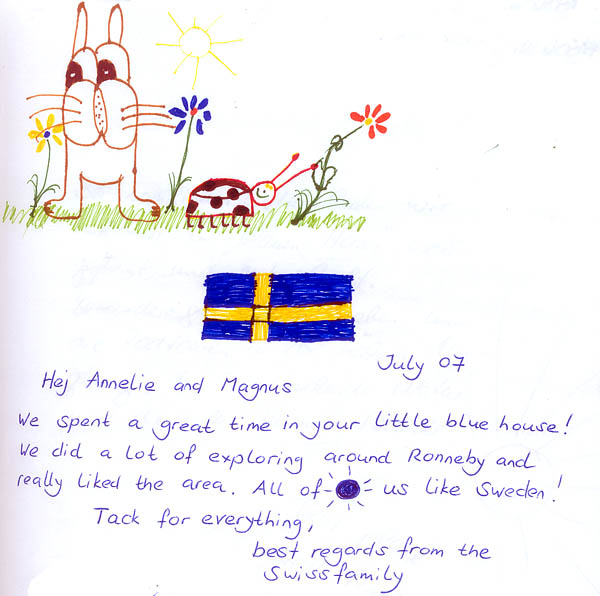 July 07
Hej Annelie and Magnus
We spent a great time in your little blue house!
We did a lot of exploring around Ronneby and
really liked the area. All of us like Sweden!
Tack for everything,
best regards from the
Swissfamily